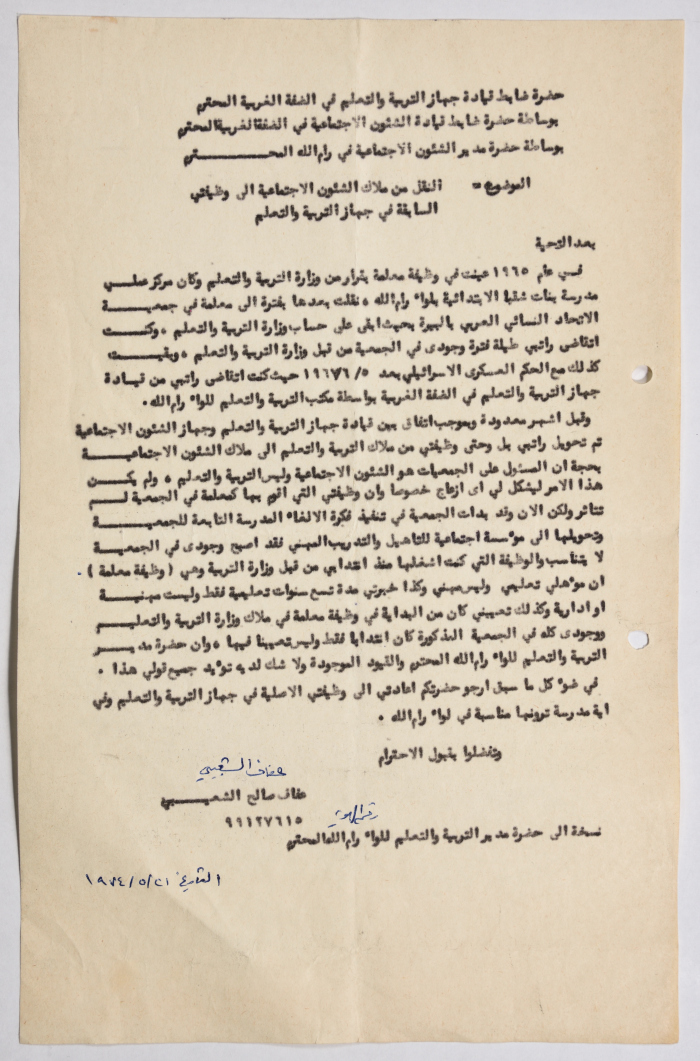 حضرة ضابط قيادة جهاز التربية والتعليم في الضفة الغربية المحترم
بوساطة حضرة ضابط قيادة الشئون الاجتماعية في الضفة الغربية المحترم
بوساطة حضرة مدير الشئون الاجتماعية في رام الله المحــــــــترم
الموضوع = النقل من ملاك الشئون الاجتماعية الى وظيفتي
السابقة في جهاز التربية والتعلم
بعد التحية
فــي عام ١٩٦٥ عينت في وظيفة معلمة بقرار من وزارة التربية والتعليم وكان مركز عملــي
مدرسة بنات شقبا الابتدائية بلواء رام الله ، نقلت بعدها بفترة الى معلمة في جمعيـــــة
الاتحاد النسائي العربي بالبيرة بحيث ابقى على حساب وزارة التربية والتعليم ، وكنــــت
اتقاضى راتبي طيلة فترة وجودى في الجمعية من قبل وزارة التربية والتعليم ، وبقيـــــت
كذلك مع الحكم العسكرى الاسرائيلي بعد ٥/ ١٩٦٧/٦ حيث كنت اتقاضى راتبي من قيـادة
جهاز التربية والتعليم في الضفة الغربية بواسطة مكتب التربية والتعليم للواء رام الله.
وقبل اشهر معدودة وبموجب اتفاق بين قيادة جهاز التربية والتعليم وجهاز الشئون الاجتماعية
تم تحويل راتبي بل وحتى وظيفتي من ملاك التربية والتعليم الى ملاك الشئون الاجتماعيـــــة
بحجة ان المسئول على الجمعيات هو الشئون الاجتماعية وليس التربية والتعليم ، ولم يكـــــن
هذا الامر ليشكل لي اى ازعاج خصوصا وان وظيفتي التي اقوم بها كمعلمة في الجمعية لــم
تتاثر ولكن الان وقد بدات الجمعية في تنفيذ فكرة الالغاء المدرسة التابعة للجمعيــــــة
وتحويلها الى مؤسسة اجتماعية للتاهيل والتدريب المهني فقد اصبح وجودى في الجمعيـــة
لا يتناسب والوظيفة التي كنت اشغلها منذ انتدابي من قبل وزارة التربية وهي ( وظيفة معلمة ) .
ان مؤهلي تعليمي وليس مهني وكذا خبرتي مدة تسع سنوات تعليمية فقط وليست مهنيـــــة
او ادارية وكذلك تعييني كان من البداية في وظيفة معلمة في ملاك وزارة التربية والتعليـــم
ووجودى كله في الجمعية المذكورة كان انتدابا فقط وليس تعيينا فيها ، وان حضرة مديـــر
التربية والتعليم للواء رام الله المحترم والقيود الموجودة ولا شك لديه تؤيد جميع قولي هذا .
في ضوء كل ما سبق ارجو حضرتكم اعادتي الى وظيفتي الاصلية في جهاز التربية والتعليم وفي
اية مدرسة ترونها مناسبة في لواء رام الله .
وتفضلوا بقبول الاحترام
عفاف الشعيبي
عفاف صالح الشعيـــــبي
رقم الهوية
٩٩١٢٧٦١٥
نسخة الى حضرة مدير التربية والتعليم للواء رام الله المحترم
التاريخ ١٩٧٤/٥/٢١